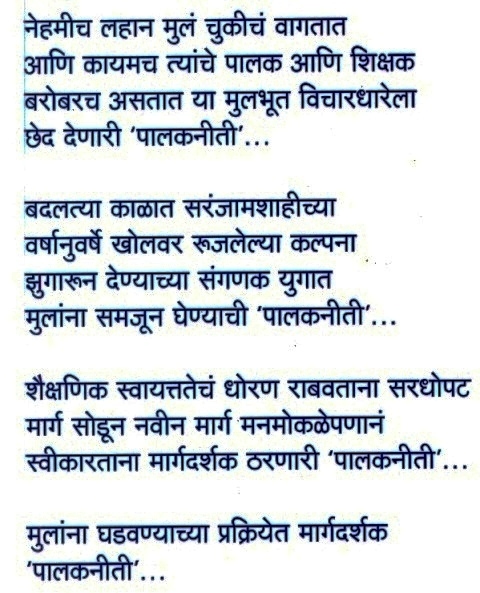 नेहमीच लहान मुलं चुकीचं वागतात
आणि कायमच त्यांचे पालक आणि शिक्षक
बरोबरच असतात या मुलभूत विचारधारेला
छेद देणारी ‘पालकनीती’...
बदलत्या काळात सरंजामशाहीच्या
वर्षानुवर्षे खोलवर रूजलेल्या कल्पना
झुगारून देण्याच्या संगणक युगात
मुलांना समजून घेण्याची ‘पालकनीती’...
शैक्षणिक स्वायत्ततेचं धोरण राबवताना सरधोपट
मार्ग सोडून नवीन मार्ग मनमोकळेपणानं
स्वीकारताना मार्गदर्शक ठरणारी ‘पालकनीती’...
मुलांना घडवण्याच्या प्रक्रियेत मार्गदर्शक
‘पालकनीती’...